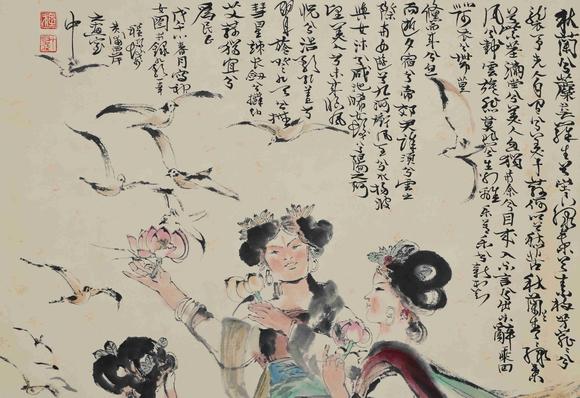 秋蘭兮蘼蕪羅生兮堂下綠葉兮素枝芳菲菲兮
襲予夫人自有兮美子蓀何以兮愁苦秋蘭兮青青綠葉
兮紫莖滿堂兮美人忽獨與余兮目成入不言兮出不辭乘回
風兮駕雲旗悲莫悲兮生別離樂莫樂兮新相知
荷衣兮蕙帶
儵而來兮忽
而逝夕宿兮帝郊君誰須兮雲之
際與女遊兮九河衝風至兮水揚波
與女沐兮咸池晞女髮兮陽之阿
望美人兮未來臨風
怳兮浩歌孔蓋兮
翠旍登九天兮撫
彗星竦長劍兮擁幼
艾蓀獨宜兮
爲民正